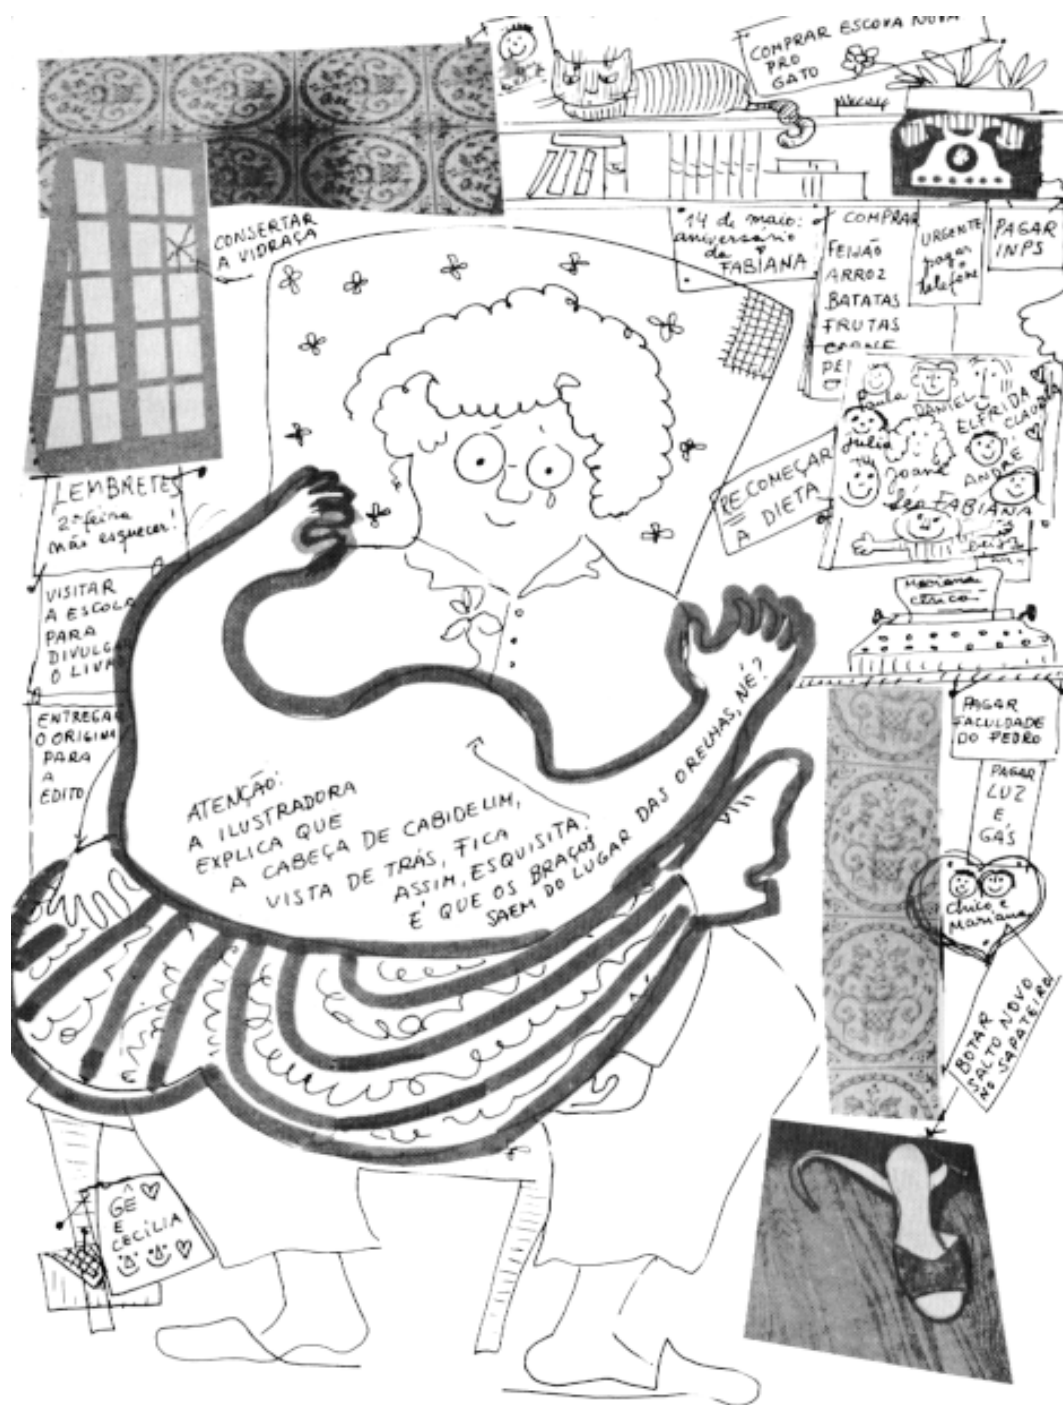 COMPRAR ESCOVA NOVA
PRO
GATO
CONSERTAR
A VIDRAÇA
14 de maio:
aniversário
da
FABIANA
COMPRAR
FEIJÃO
ARROZ
BATATAS
FRUTAS
CARNE
URGENTE
pagar
o
telefone
PAGAR
INPS
Paula
DANIEL
ELFRIDA
CLAUDIA
Julia
Joana
ANDRÉ
Léo FABIANA
RECOMEÇAR
A DIETA
LEMBRETES
2ª feira
não esquecer!
VISITAR
A ESCOLA
PARA
DIVULGA
O LIV
ENTREGAR
O ORIGINA
PARA
A
EDITO
Mariana
Chico
PAGAR
FACULDADE
DO PEDRO
PAGAR
LUZ
E
GÁS
Chico e
Mariana
BOTAR
SALTO NOVO
NO SAPATEIRO
ATENÇÃO:
A ILUSTRADORA
EXPLICA QUE
A CABEÇA DE CABIDELIM,
VISTA DE TRÁS, FICA
ASSIM, ESQUISITA.
É QUE OS BRAÇOS
SAEM DO LUGAR DAS ORELHAS, NÉ?
GÊ
E
CECÍLIA